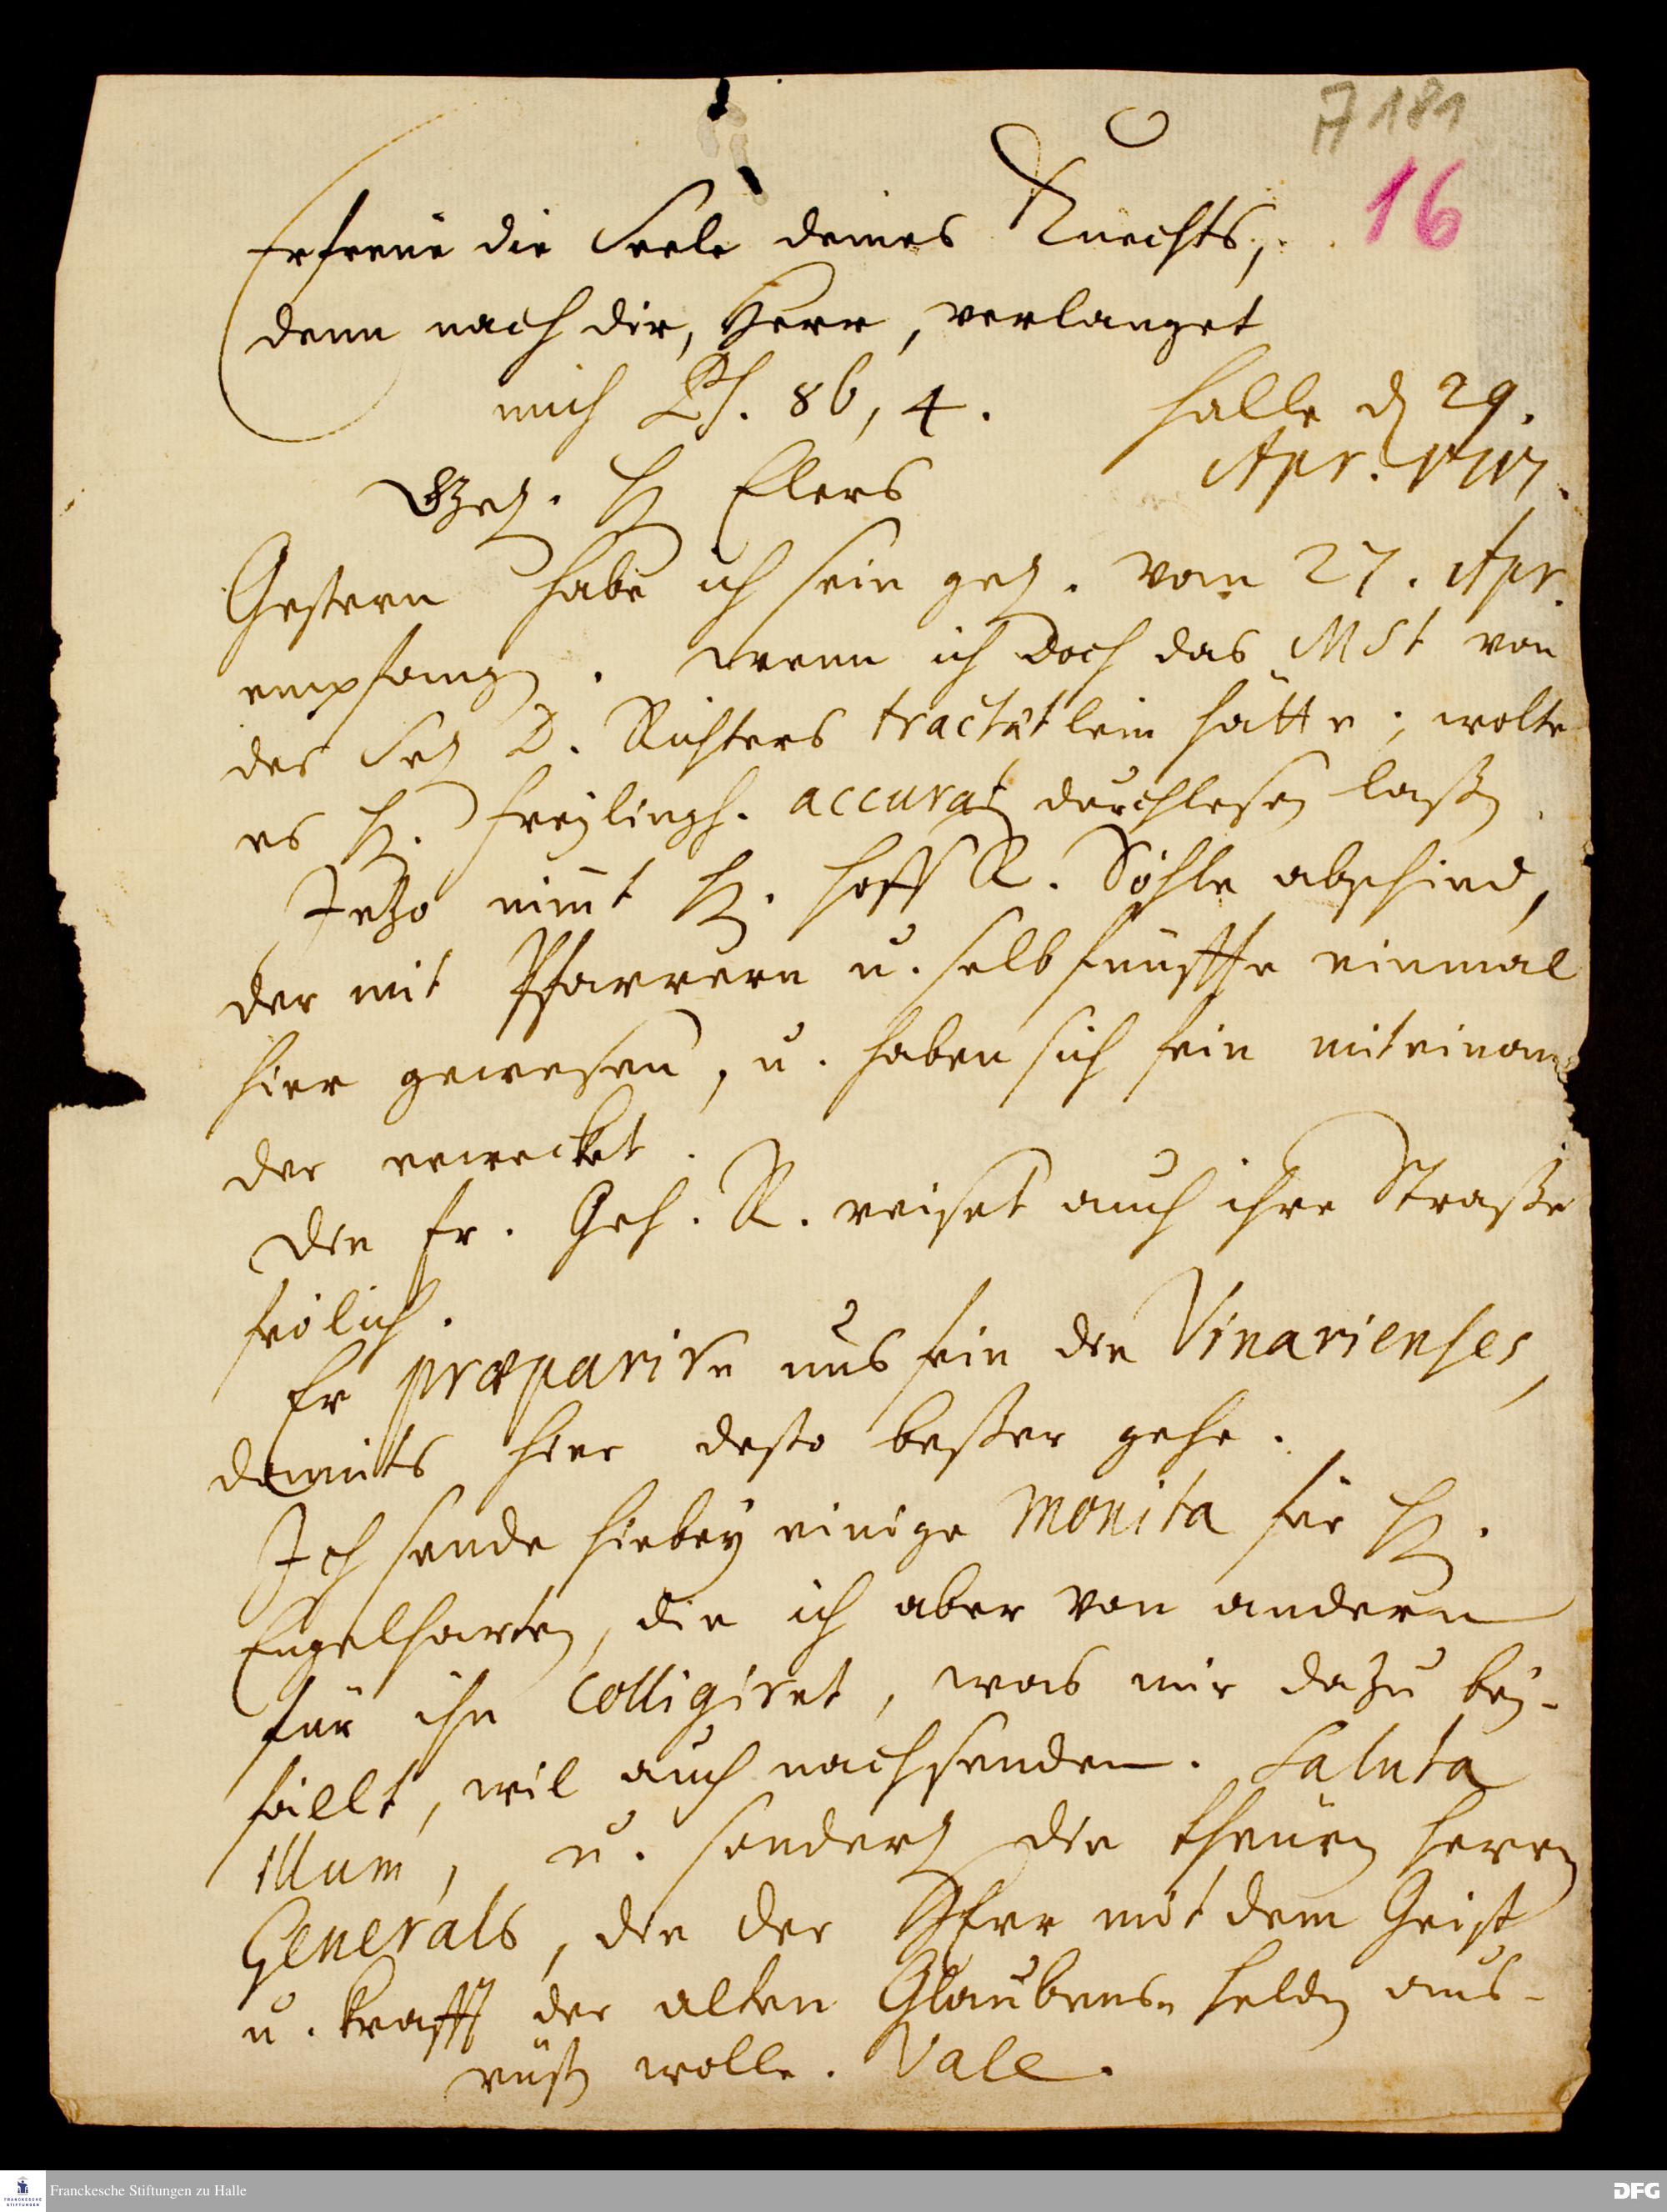 A 181
16
Erfreue die Seele deines Knechts,
denn nach dir, Herr, verlanget
mich Ps. 86, 4. Halle d 29.
Apr. 1712.
H Elers
Gestern habe ich sein gel. vom 27. Apr.
empfangen. Wenn ich doch das MSt von
des Sel D. Richters tractätlein hätte; wolte
es H. Freylingh. accurat durchlesen laßen.
Jetzo nimt H. Hoff R. Söhle abschied,
der mit Pfarrern u. selb fünffte einmal
hier gewesen, u. haben sich fein miteinan
der erwecket.
Die Fr. Geh. R. reiset auch ihre Straße
frölich.
Er præparire uns fein die Vinarienses,
damits hier desto beßer gehe.
Ich sende hiebey einige Monita für H.
Engelharten, die ich aber von andern
für ihn colligiret, was mir dazu bey-
fällt, wil auch nachsenden. Saluta
illum, u. sonderl die theuren Herren
Generals, die der HErr mit dem Geist
u. Krafft der alten Glaubens-Helden aus-
rüsten wolle. Vale.
Franckesche Stiftungen zu Halle
FRANCKESCHE STIFTUNGEN
DFG